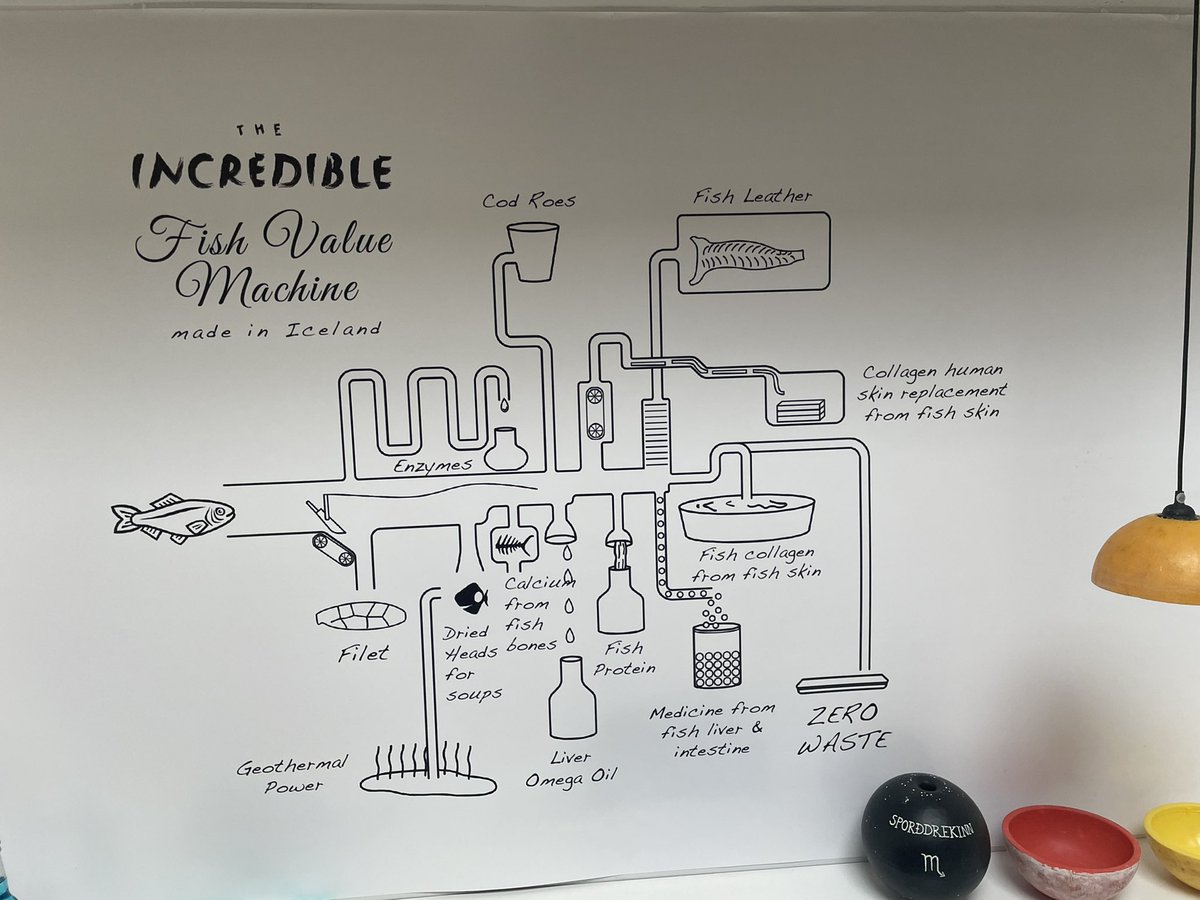 THE
INCREDIBLE
Fish Value
Machine
made in Iceland
Cod Roes
Fish Leather
Collagen human
skin replacement
from fish skin
Enzymes
Fish collagen
from fish skin
Filet
Dried
Heads
for
soups
Calcium
from
fish
bones
Fish
Protein
Medicine from
fish liver &
intestine
ZERO
WASTE
Geothermal
Power
Liver
Omega Oil
SPORÐDREKINN
♏